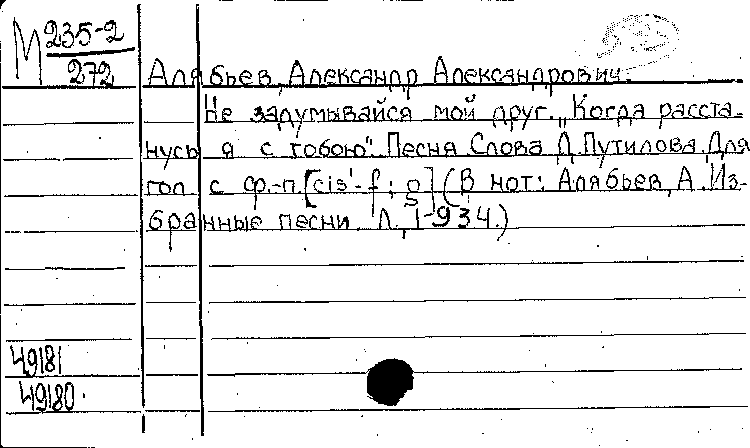 М 235-2
272
Алябьев, Александр Александрович.
Не задумывайся мой друг. „Когда расста-
нусь я с тобою". Песня. Слова Д. Путилова. Для
гол. с ф.-п. [cis'-f²; g] (В нот: Алябьев, А. Из-
бранные песни. Л., 1934.)
49181
49180.